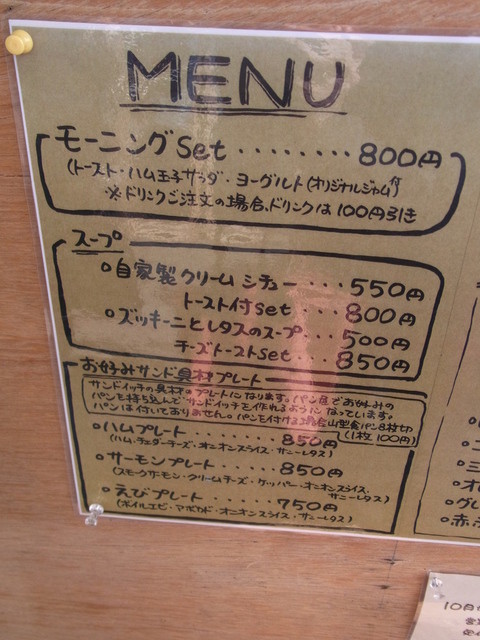 MENU
モーニングSet ・・・・・・・・ 800円
(トースト・ハム玉子サラダ・ヨーグルト(オリジナルジャム付)
※ドリンクご注文の場合、ドリンクは100円引き
スープ
○自家製クリームシチュー・・・550円
トースト付set・・・800円
○ズッキーニとレタスのスープ・・・500円
チーズトーストset・・・850円
お好みサンド具材プレート
サンドイッチの具材のプレートになります。パン
パンを持ち込んでサンドイッチを作れるようになっています。
パンは付いておりません。パンを付ける場合山型食パン8枚切
(1枚100円)
○ハムプレート・・・・・・・850円
(ハム・チェダーチーズ・オニオンスライス・サニーレタス)
○サーモンプレート・・・・・850円
(スモークサーモン・クリームチーズ・ケッパー・オニオンスライス・
サニーレタス)
○えびプレート・・・・・・750円
(ボイルエビ・アボカド・オニオンスライス・サニーレタス)
10月